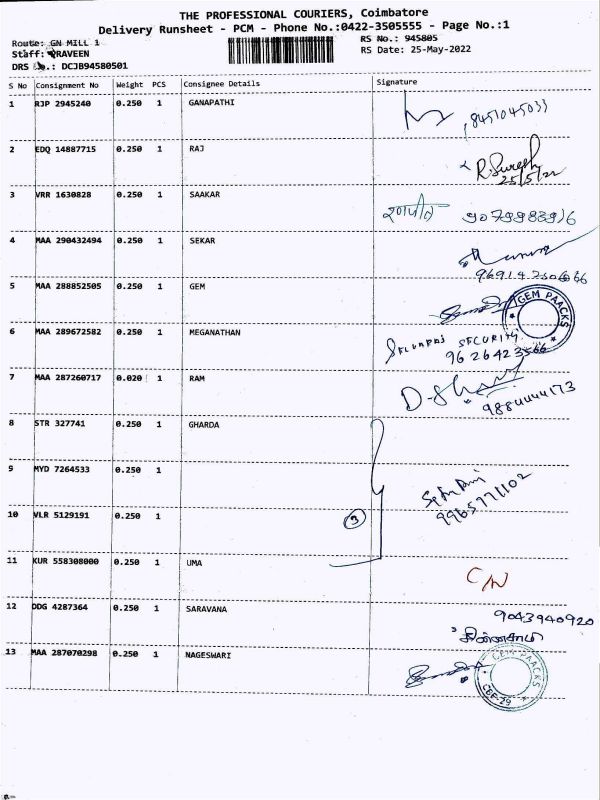 THE PROFESSIONAL COURIERS, Coimbatore
Delivery Runsheet - PCM - Phone No.:0422-3505555 - Page No.:1
Route: GN MILL 1
RS No.: 945805
Staff: PRAVEEN
RS Date: 25-May-2022
DRS No.: DCJB94580501
S No Consignment No Weight PCS Consignee Details Signature
1 RJP 2945240 0.250 1 GANAPATHI 8451045033
2 EDQ 14887715 0.250 1 RAJ R.Suresh
25/5/22
3 VRR 1630828 0.250 1 SAAKAR 9079983916
4 MAA 290432494 0.250 1 SEKAR
5 MAA 288852505 0.250 1 GEM
GEM PAACKS
6 MAA 289672582 0.250 1 MEGANATHAN SECURITY
9626423566
7 MAA 287260717 0.020 1 RAM
9884444173
8 STR 327741 0.250 1 GHARDA
9 MYD 7264533 0.250 1
9965771102
10 VLR 5129191 0.250 1 3
11 KUR 558308000 0.250 1 UMA C/N
12 DDG 4287364 0.250 1 SARAVANA 9043940920
சின்னசாமி
13 MAA 287070298 0.250 1 NAGESWARI
GEM PAACKS
CBE-29